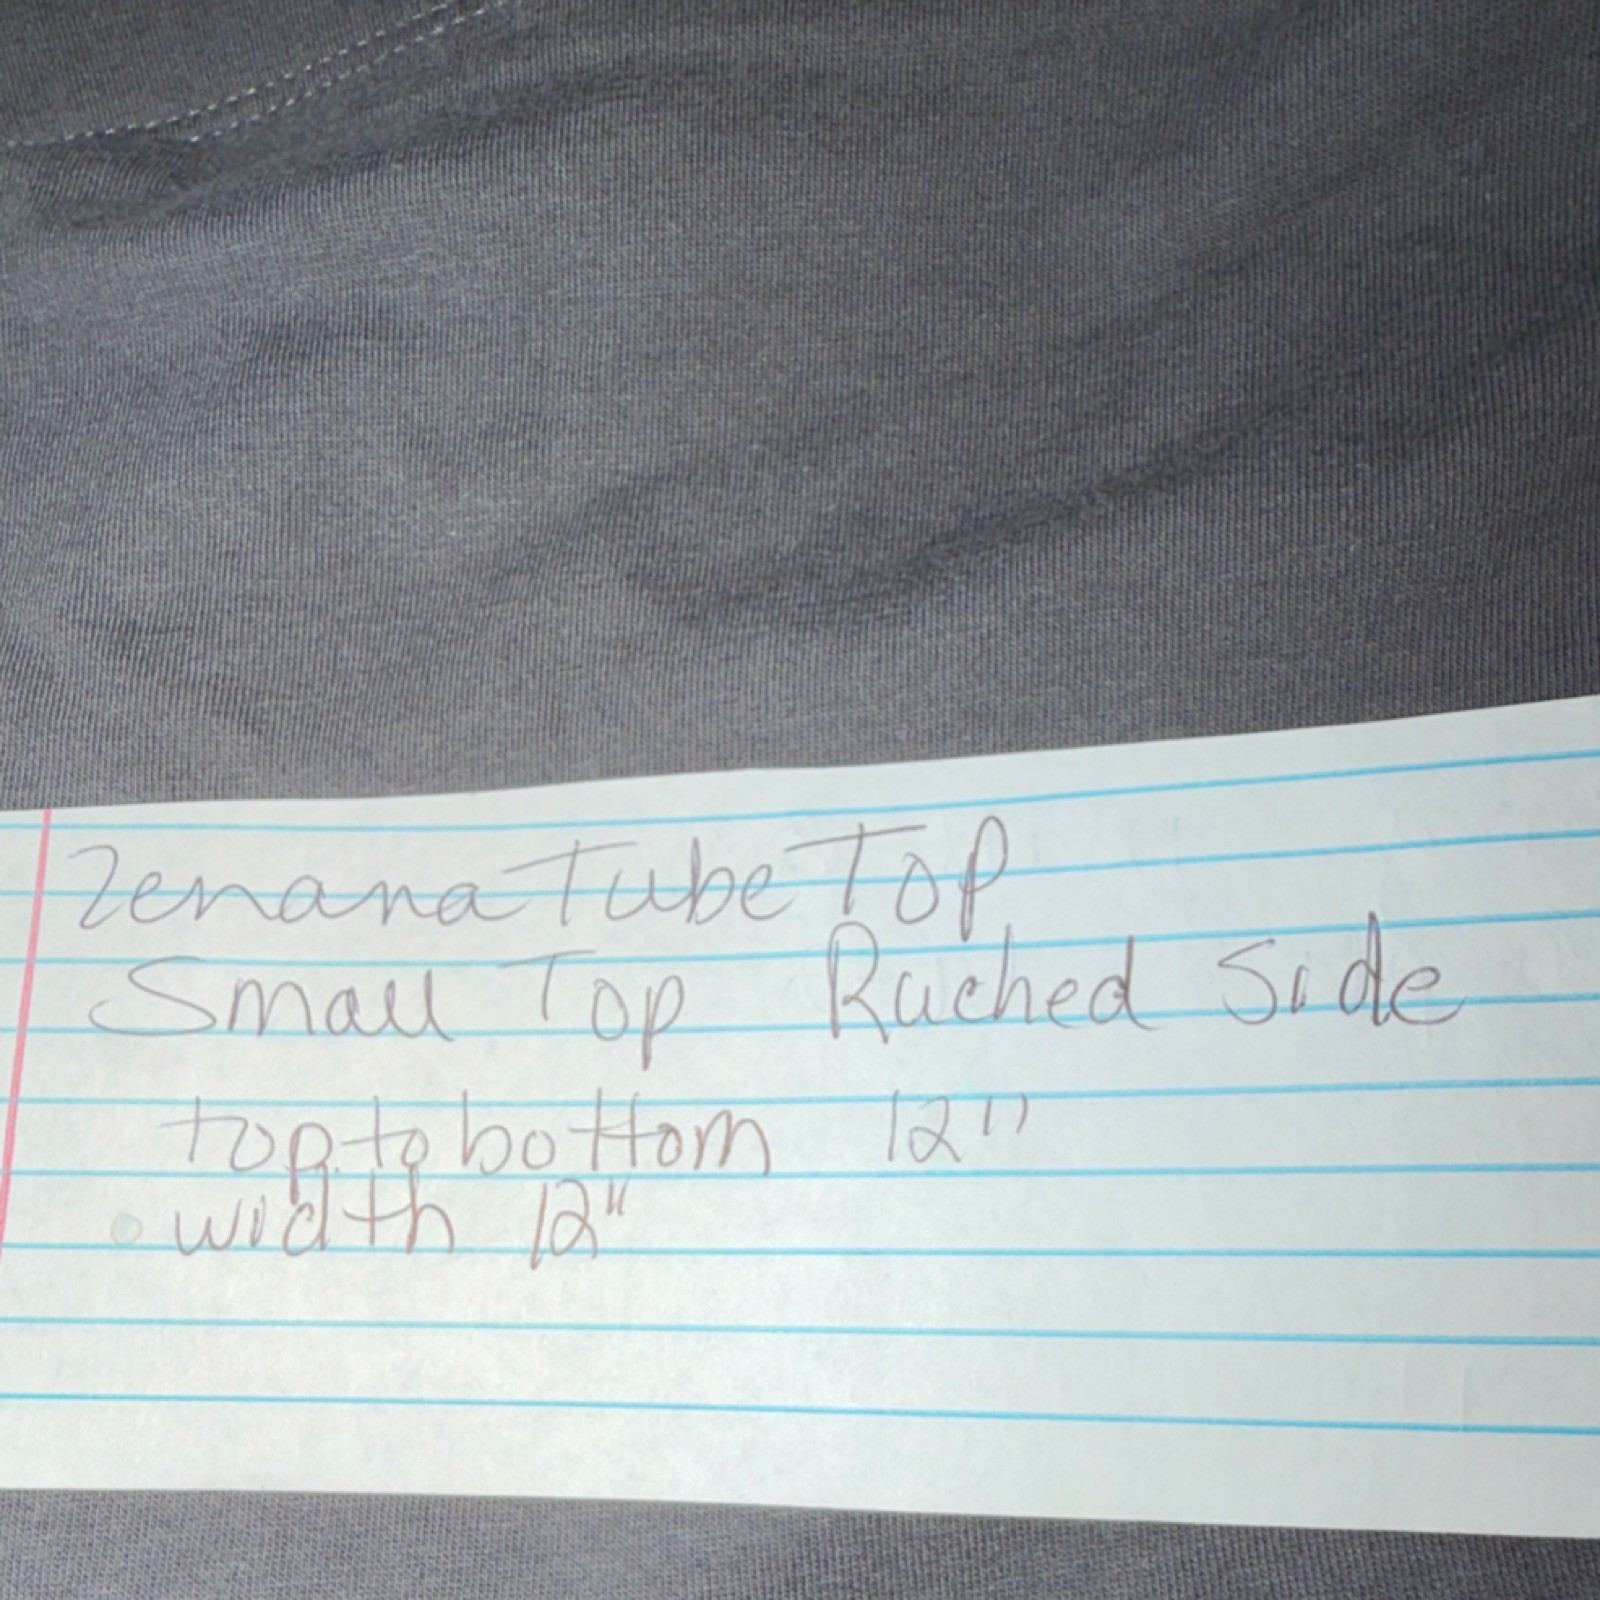 Zenana Tube Top
Small Top Ruched Side
top to bottom 12"
width 12"